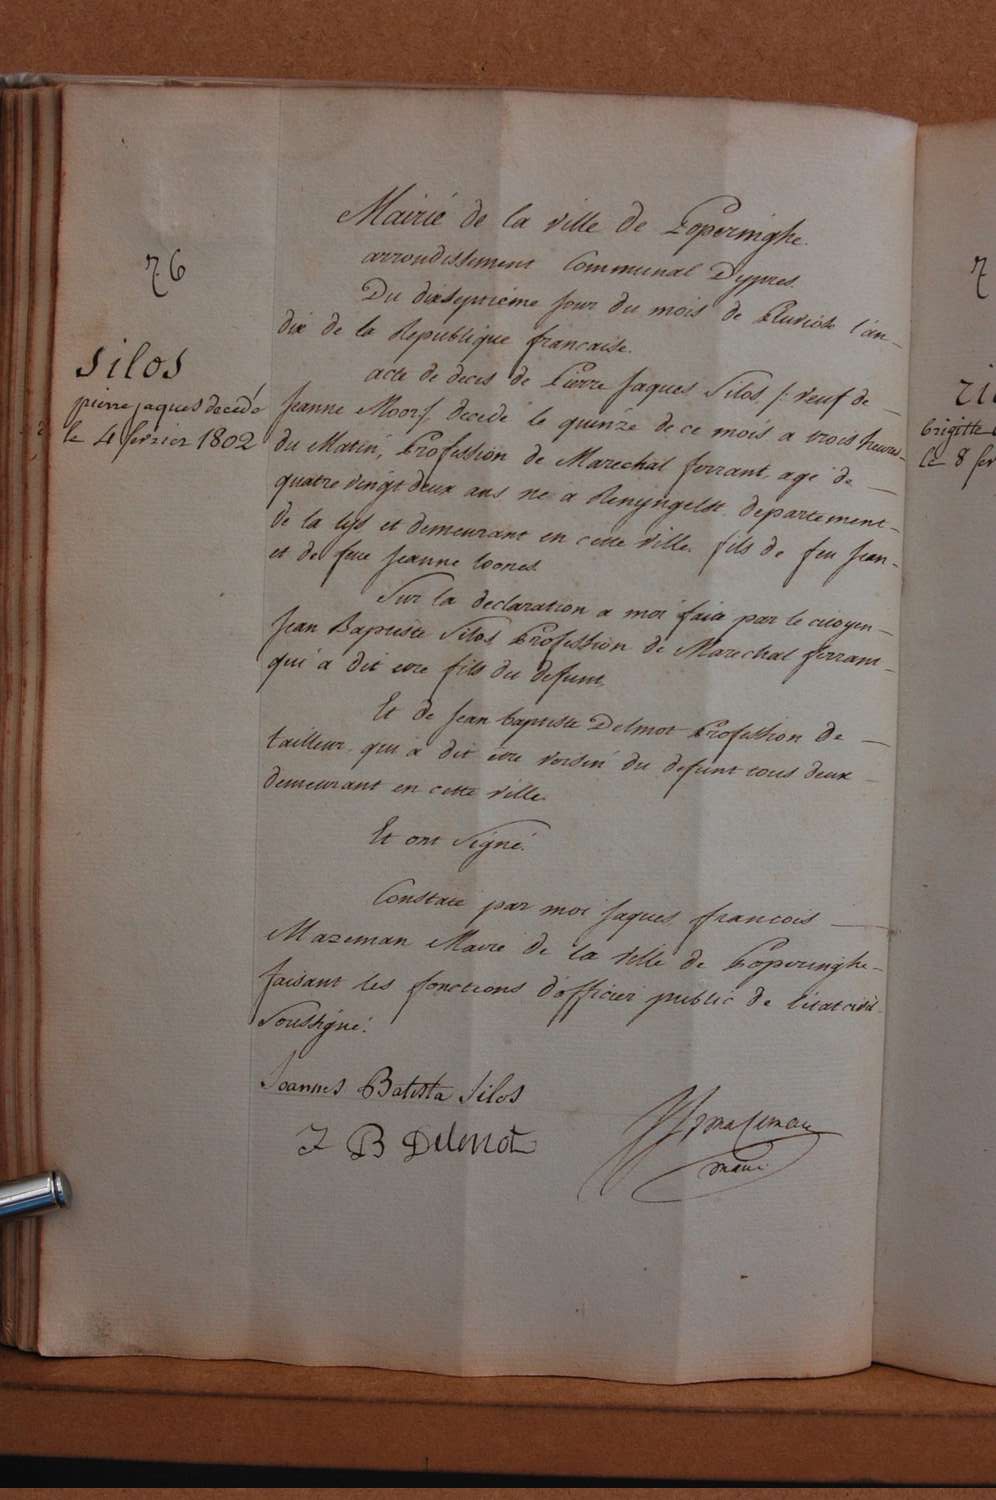 76
Silos
pierre jaques decedé
le 4 fevrier 1802
Mairié de la ville de Poperinghe.
arrondissement Communal Dypres.
Du dixseptiéme jour du mois de Pluviose l'an
dix de la Republique francaise.
acte de deces de Pierre Jaques Silos /: veuf de
Jeanne Moors /. decedé le quinze de ce mois a trois heures
du Matin, Profession de Marechal ferrant, agé de
quatre vingt deux ans né a Renijngelst departement
de la lijs et demeurant en cette ville, fils de feu Jean
et de feue Jeanne Loones.
Sur la declaration a moi faite par le citoyen
Jean Baptiste Silos Profession de Marechal ferrant
qui a dit etre fils du defunt.
Et de Jean baptiste Delmot Profession de
tailleur qui a dit etre voisin du defunt tous deux
demeurant en cette ville.
Et ont Signé.
Constaté par moi Jaques francois
Mazeman Maire de la ville de Poperinghe
faisant les fonctions d'officier public de l'etat civil
Soussigné.
Joannes Batista Silos
J B Delmot
mazeman
maire
brigitte
le 8 fev